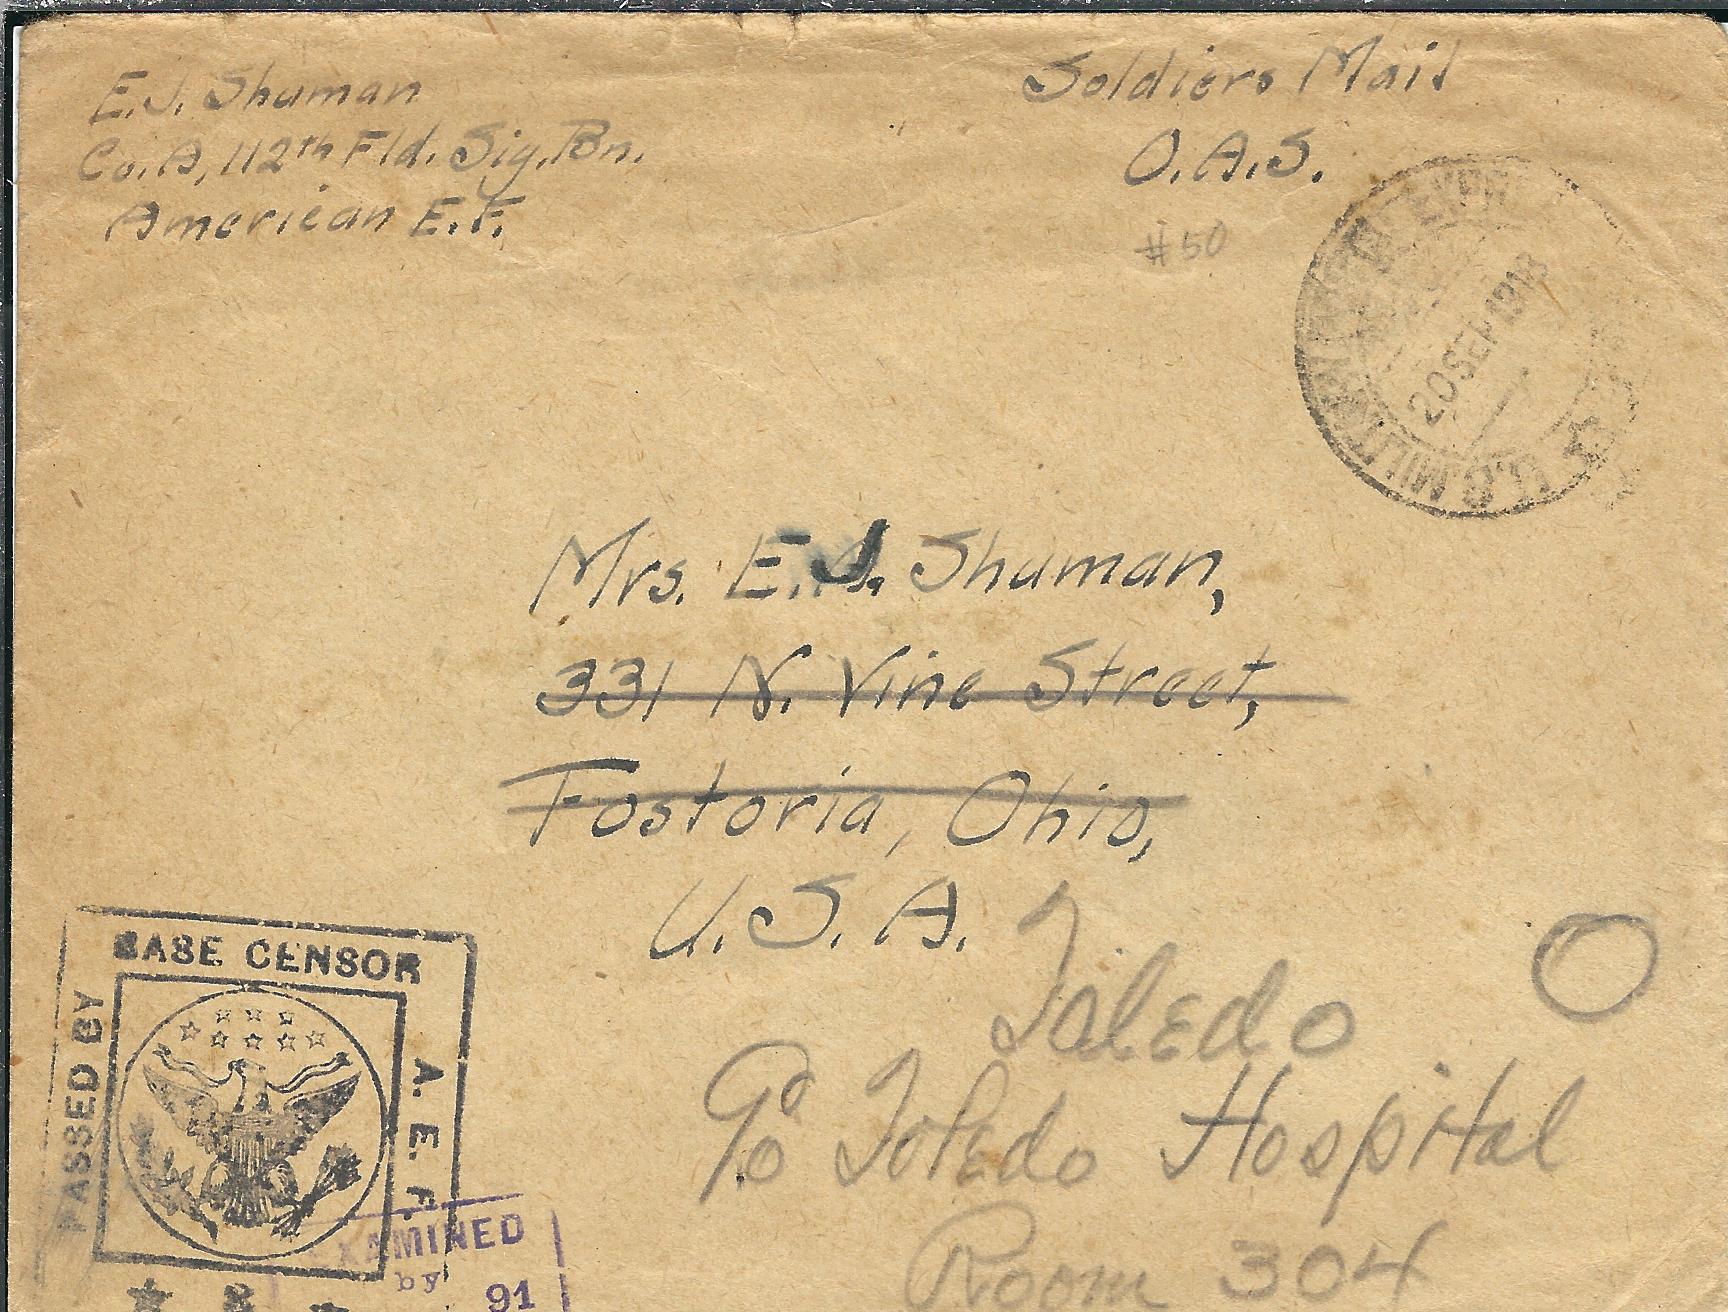 E.J. Shuman
Co. A, 112th Fld. Sig. Bn.
American E.F.
Soldiers Mail
O.A.S.
#50
U.S. MILITARY
20 SEP 1918
Mrs. E.J. Shuman,
331 N. Vine Street,
Fostoria, Ohio,
U.S.A.
Toledo
c/o Toledo Hospital
Room 304
PASSED BY
BASE CENSOR
A.E.F.
EXAMINED
by
91